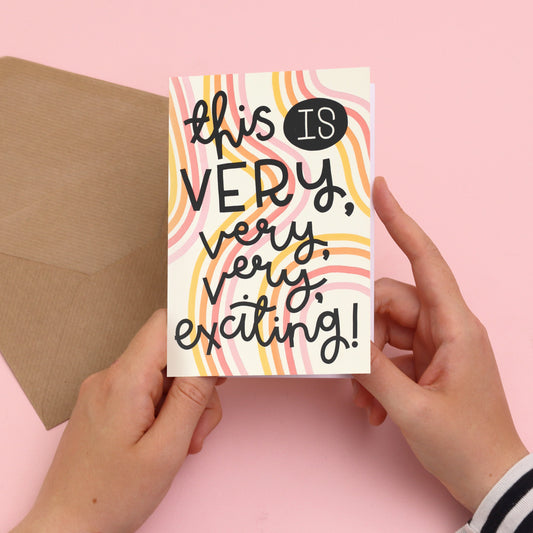 this IS
VERY,
very,
very,
exciting!